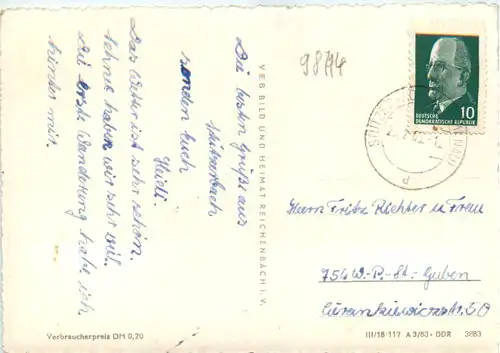 Die besten Grüße aus
Stützerbach
senden Euch
Heidi.
Das Wetter ist sehr schön.
haben wir sehr viel.
Die erste Wanderung habe ich
hinter mir.
VEB BILD UND HEIMAT REICHENBACH i. V.
9874
10
DEUTSCHE
DEMOKRATISCHE REPUBLIK
Herrn Fritz Richter u Frau
7560 W.-P.-St.-Guben
Curenkiewiczstr. 50
Verbraucherpreis DM 0,20
III/18/117 A 3/63 · DDR 3883